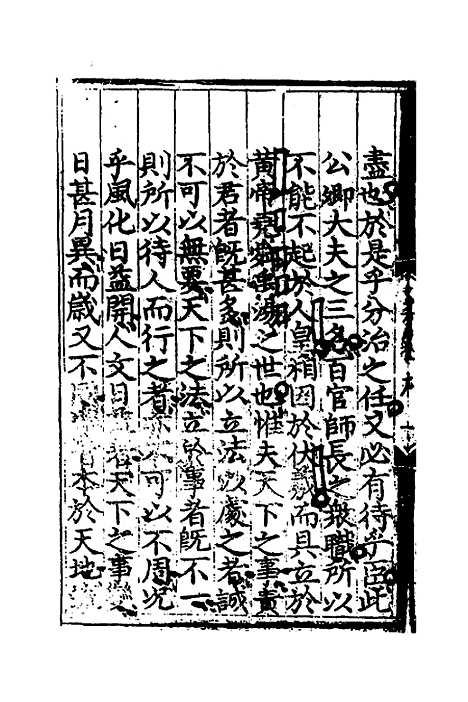 盡也於是乎分治之任又必有待乎臣此
公卿大夫之三名百官師長之衆職所以
不能不起於人皇相因於伏羲而具立於
黄帝堯舜禹湯之世也惟夫天下之事責
於君者旣甚多則所以立法以處之者誠
不可以無要天下之法立於事者旣不一
則所以待人而行之者 可以不周况
乎風化日益開人文日 天下之事
日甚月異而歳又不 本於天地